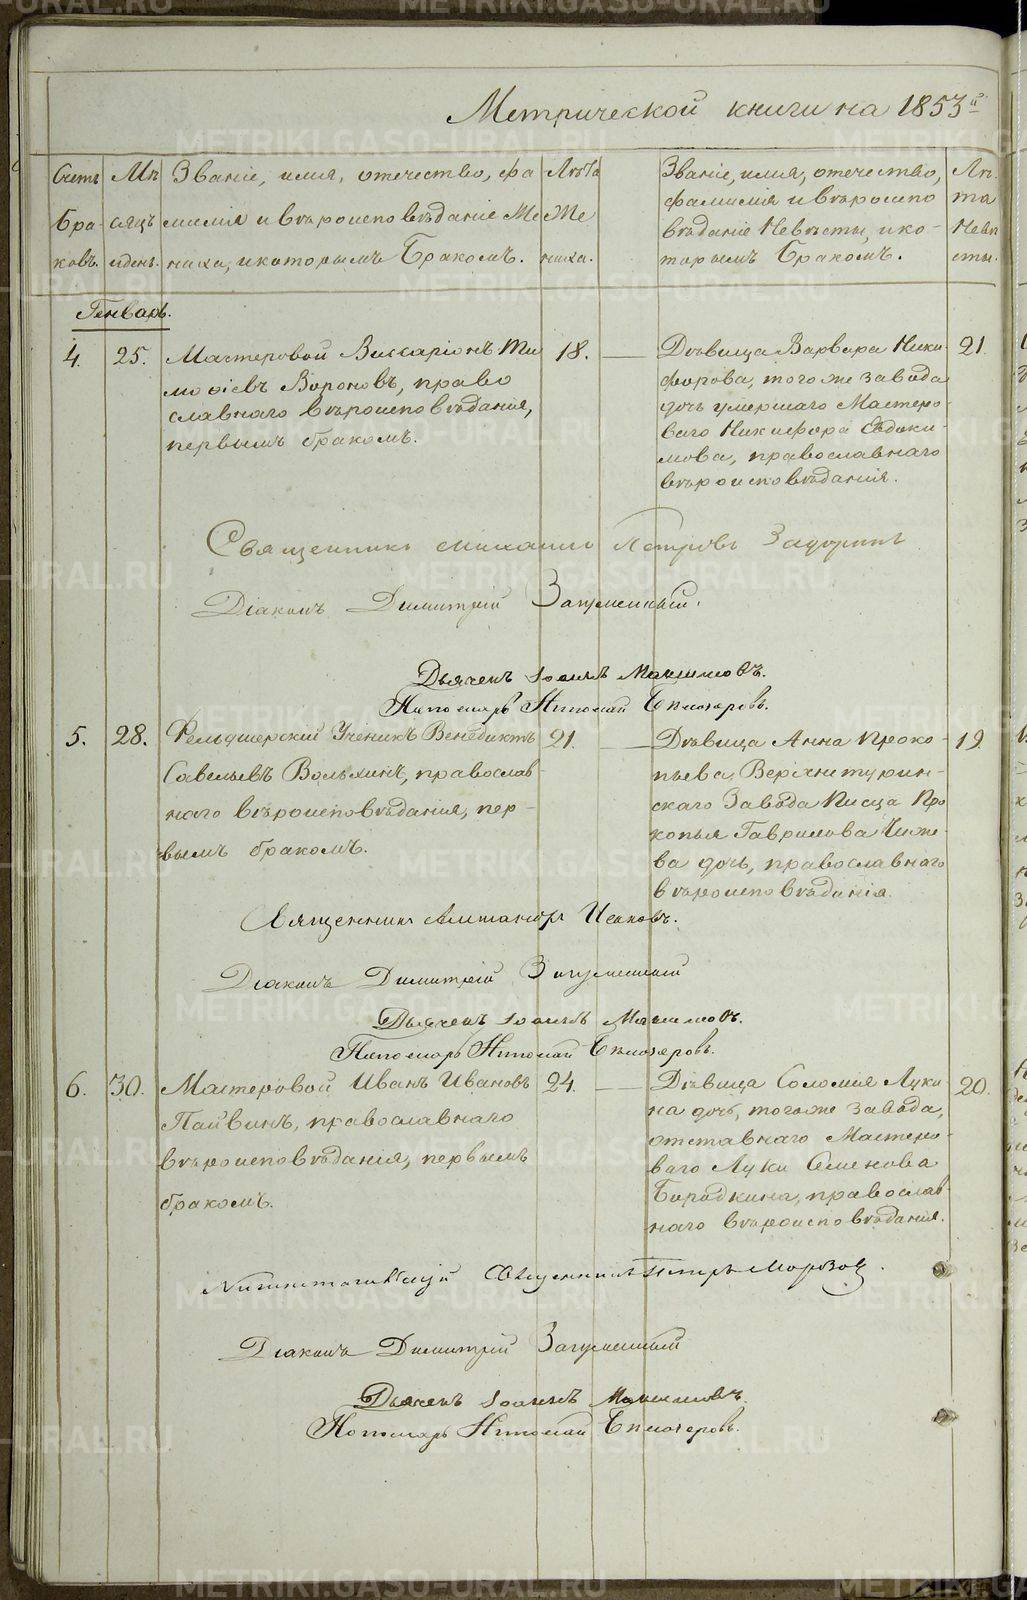 Метрической книги на 1853й
Счетъ
Бра-
ковъ.
Мѣ
сяцъ
и день.
Званіе, имя, отечество, фа
милія и вѣроисповѣданіе Же
ниха, и которымъ бракомъ.
Лѣта
Же
ниха.
Званіе, имя, отечество,
фамилія и вѣроиспо
вѣданіе Невѣсты, и ко-
торымъ бракомъ.
Лѣ-
та
Невѣ
сты.
Генварь.
4. 25. Мастеровой Виссаріонъ Ти
моѳіевъ Вороновъ, право
славнаго вѣроисповѣданія,
первымъ бракомъ.
18.
Дѣвица Варвара Ники
форова, того же завода
дочь умершаго Мастеро-
ваго Никифора Евдоки-
мова, православнаго
вѣроисповѣданія.
21.
Священникъ Михаилъ Петровъ Задоринъ
Діаконъ Димитрій Загуменный.
Дьячекъ Іоаннъ Максимовъ.
Пономарь Николай
5. 28. Фельдшерскій Ученикъ Венедиктъ
Савельевъ Вольхинъ, православ-
наго вѣроисповѣданія, пер-
вымъ бракомъ.
21.
Дѣвица Анна Проко-
пьева, Верхнетурин-
скаго Завода Писца Про
копья Гаврилова
ва дочь, православнаго
вѣроисповѣданія.
19.
Священникъ Александръ
Діаконъ Димитрій Загуменный
Дьячекъ Іоаннъ Максимовъ.
Пономарь Николай
6. 30. Мастеровой Иванъ Ивановъ
Пайвинъ, православнаго
вѣроисповѣданія, первымъ
бракомъ.
24.
Дѣвица Соломія Луки
на дочь, того же завода,
отставнаго Мастеро-
ваго Луки Семенова
Бородкина, православ-
наго вѣроисповѣданія.
20.
Священникъ Петръ Морозов
Діаконъ Димитрій Загуменный
Дьячекъ Іоаннъ Максимовъ.
Пономарь Николай
METRIKI.GASO-URAL.RU